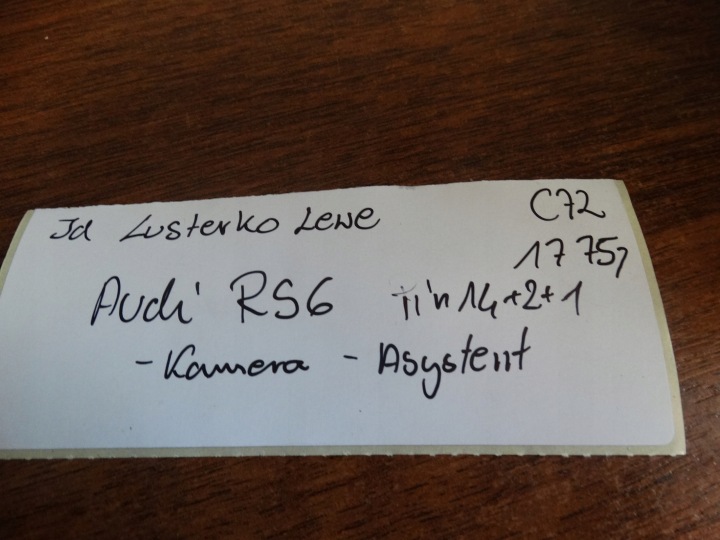 Jd Lusterko Lewe C72
17 75,
Audi RS6 Pin 14+2+1
- Kamera - Asystent